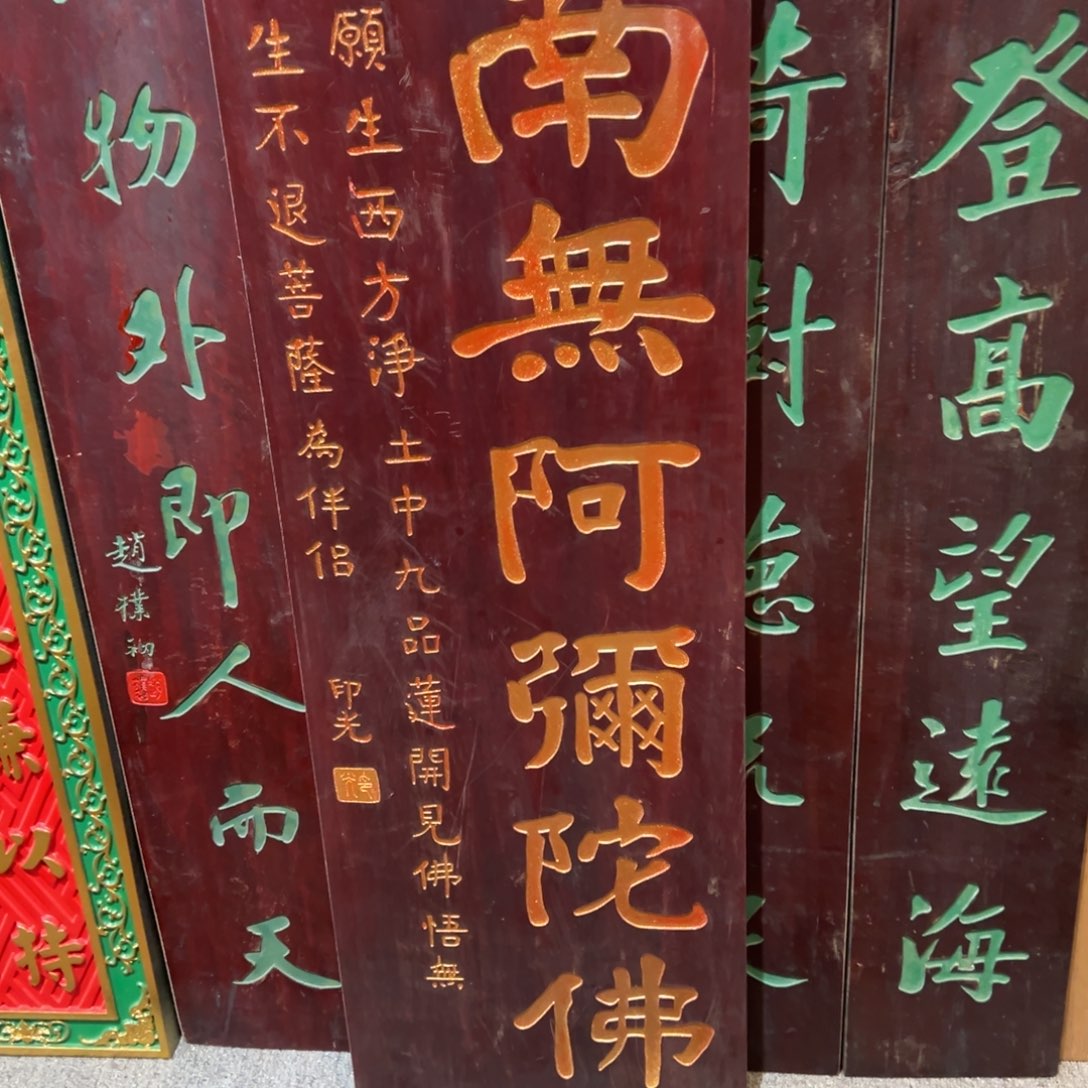 登高望遠海
倚樹
南無阿彌陀佛
願生西方淨土中九品蓮開見佛悟無
生不退菩薩為伴侶
印光
物外即人而天
趙樸初
以持